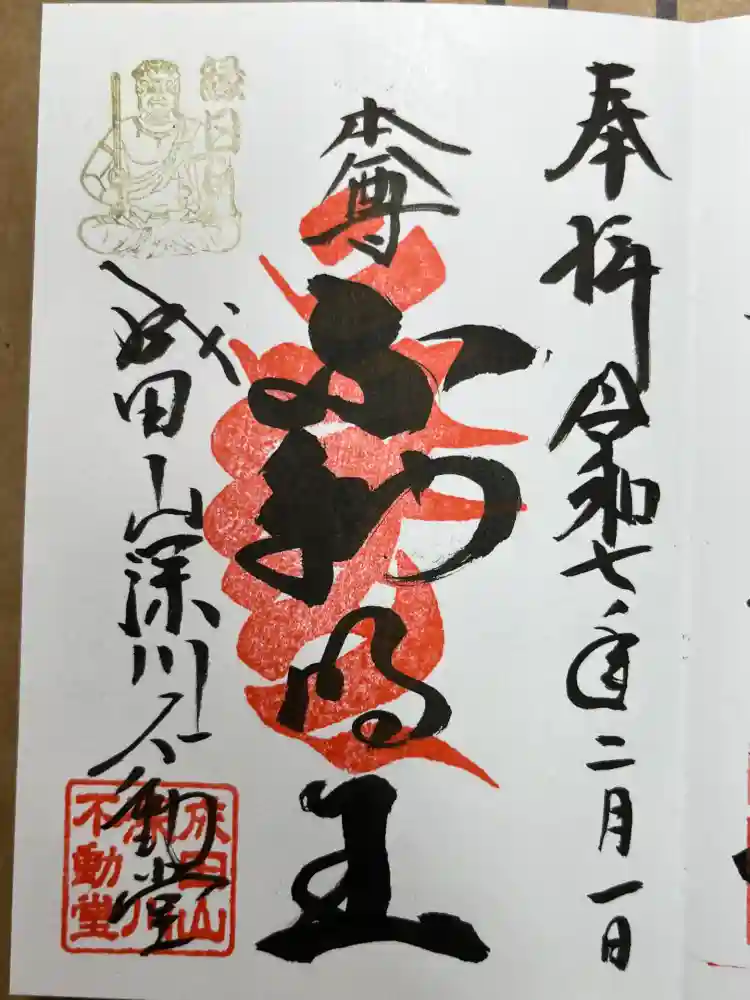 奉拝 令和七年二月一日
本尊
不動明王
縁日
成田山深川不動堂
成田山
深川
不動堂